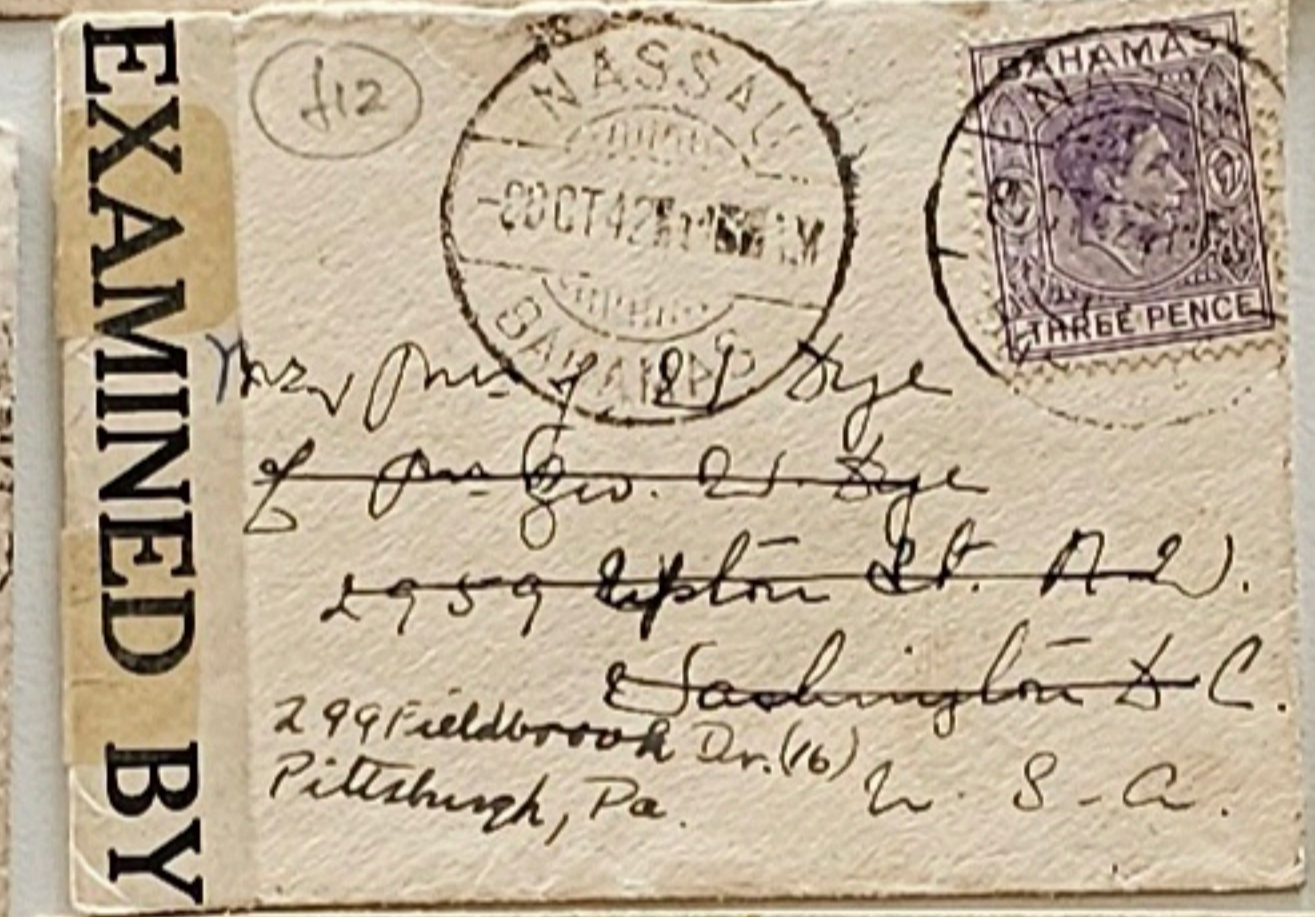 EXAMINED BY
£12
NASSAU
OCT 42
BAHAMAS
BAHAMAS
THREE PENCE
Dye
Geo. W. Dye
2959 Upton St. N.W.
Washington D C.
299 Fieldbrook Dr. (16)
Pittsburgh, Pa.
U. S. A.